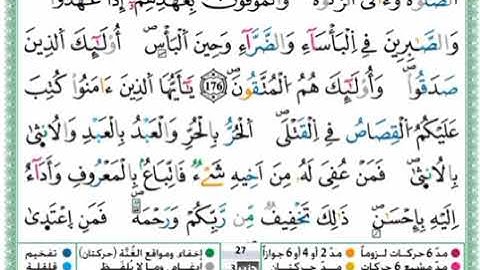 الصَّلَوٰةَ وَءَاتَى الزَّكَوٰةَ وَالْمُوفُونَ بِعَهْدِهِمُۥٓ إِذَا عَٰهَدُوا
وَالصَّٰبِرِينَ فِي اِلْبَأْسَآءِ وَالضَّرَّآءِ وَحِينَ اَلْبَأْسِ أُوْلَٰٓئِكَ اَلذِينَ
صَدَقُوا وَأُوْلَٰٓئِكَ هُمُ اُلْمُتَّقُونَ 176 يَٰٓأَيُّهَا اَلذِينَ ءَامَنُوا كُتِبَ
عَلَيْكُمُ اُلْقِصَاصُ فِي اِلْقَتْلَى اَلْحُرُّ بِالْحُرِّ وَالْعَبْدُ بِالْعَبْدِ وَالُانثَىٰ
بِالُانثَىٰ فَمَنْ عُفِيَ لَهُۥ مِنَ اَخِيهِ شَےْءٌ فَاتِّبَاعٌ بِالْمَعْرُوفِ وَأَدَآءٌ
اِلَيْهِ بِإِحْسَٰنٍ ذَٰلِكَ تَخْفِيفٌ مِّن رَّبِّكُمْ وَرَحْمَةٌ فَمَنِ اِعْتَدَىٰ
مدّ 6 حركات لزوماً مدّ 2 أو 4 أو 6 جوازاً 27 إخفاء، ومواقع الغُنَّة (حركتان) تفخيم
مدّ مشبع 6 حركات مدّ حركتان إدغام، وما لا يُلفظ قلقلة